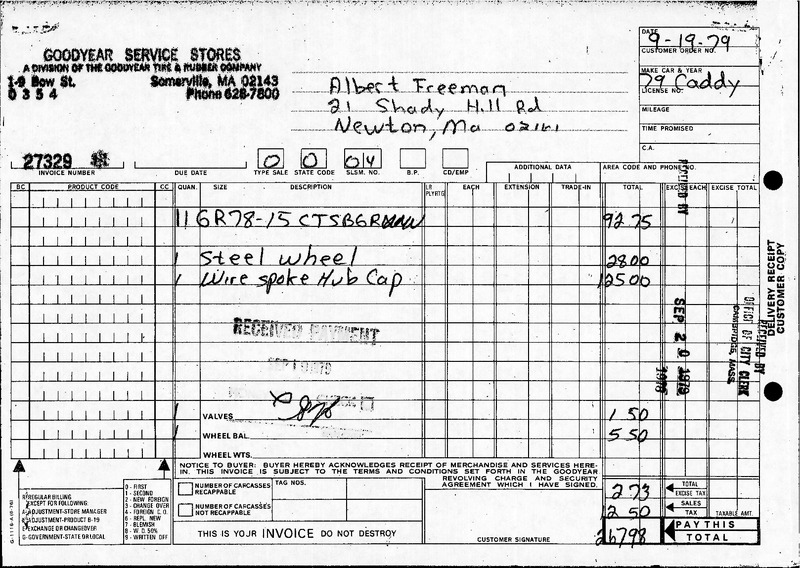 GOODYEAR SERVICE STORES
A DIVISION OF THE GOODYEAR TIRE & RUBBER COMPANY
1-9 Bow St. Somerville, MA 02143
0 3 5 4 Phone 628-7800
Albert Freeman
21 Shady Hill Rd
Newton, Ma 02161
DATE
9-19-79
CUSTOMER ORDER NO.
MAKE CAR & YEAR
79 Caddy
LICENSE NO.
MILEAGE
TIME PROMISED
C.A.
27329
INVOICE NUMBER
DUE DATE
0 0 04
TYPE SALE STATE CODE SLSM. NO. B.P. CD/EMP
ADDITIONAL DATA
AREA CODE AND PHONE NO.
BC PRODUCT CODE CC QUAN. SIZE DESCRIPTION LR PLYRTG EACH EXTENSION TRADE-IN TOTAL EXCISE EACH EXCISE TOTAL
1 GR78-15 CTSBGR 92 75
1 Steel wheel 28 00
1 Wire spoke Hub Cap 125 00
RECEIVED PAYMENT
1 VALVES 1 50
1 WHEEL BAL. 5 50
WHEEL WTS.
RECEIVED BY
SEP 20 1979
1979
RECEIVED BY
OFFICE OF CITY CLERK
CAMBRIDGE, MASS.
DELIVERY RECEIPT
CUSTOMER COPY
NOTICE TO BUYER: BUYER HEREBY ACKNOWLEDGES RECEIPT OF MERCHANDISE AND SERVICES HERE-
IN. THIS INVOICE IS SUBJECT TO THE TERMS AND CONDITIONS SET FORTH IN THE GOODYEAR
REVOLVING CHARGE AND SECURITY
AGREEMENT WHICH I HAVE SIGNED.
R-REGULAR BILLING
EXCEPT FOR FOLLOWING
A-ADJUSTMENT-STORE MANAGER
K-ADJUSTMENT-PRODUCT B-19
E-EXCHANGE OR CHANGEOVER
G-GOVERNMENT-STATE OR LOCAL
0 - FIRST
1 - SECOND
2 - NEW FOREIGN
3 - CHANGE OVER
4 - FOREIGN C.O.
6 - REPL. NEW
7 - BLEMISH
8 - W.O. 50%
9 - WRITTEN OFF
NUMBER OF CARCASSES
RECAPPABLE
TAG NOS.
NUMBER OF CARCASSES
NOT RECAPPABLE
THIS IS YOUR INVOICE DO NOT DESTROY
CUSTOMER SIGNATURE
2 73 TOTAL EXCISE TAX
12 50 SALES TAX TAXABLE AMT.
267 98 PAY THIS TOTAL